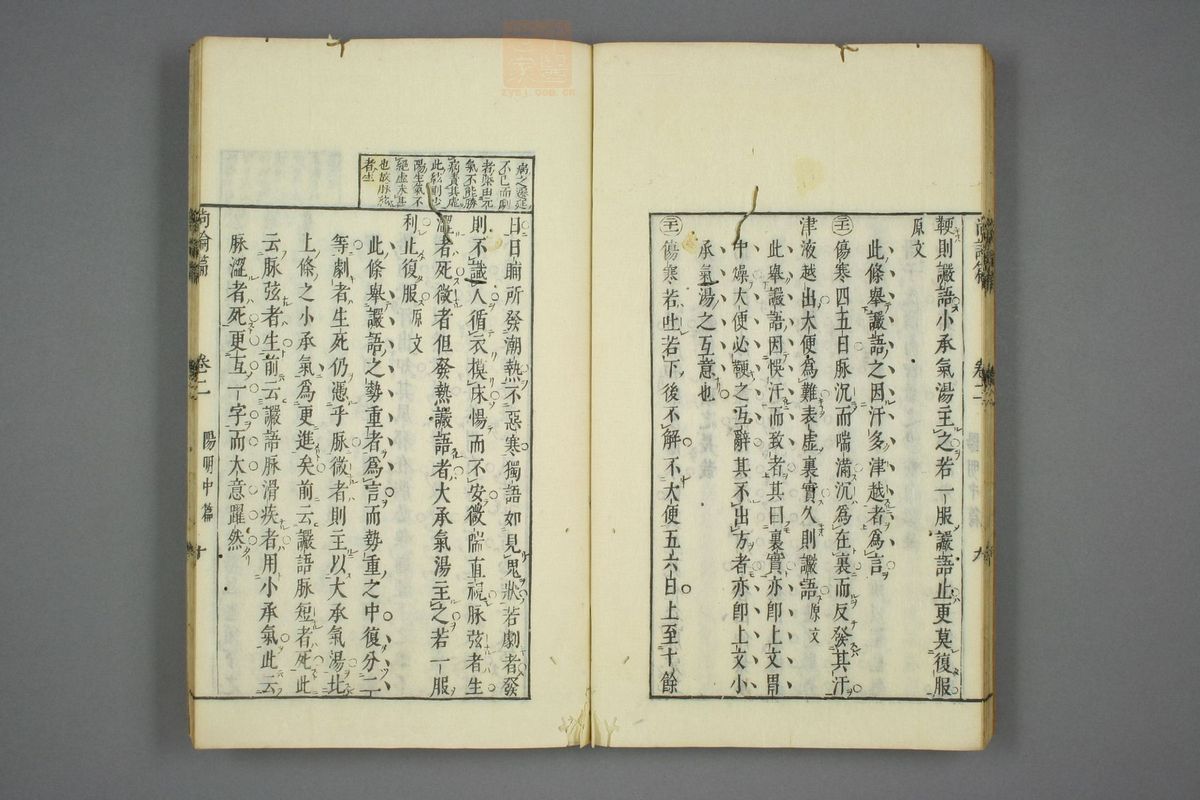 鞕則讝語小承氣湯主之若一服讝語止更莫復服
原文
此條舉讝語之因汗多津越者爲言
傷寒四五日脉沉而喘滿沉爲在裏而反發其汗
津液越出大便爲難表虛裏實久則讝語原文
此舉讝語因悞汗而致者其曰裏實亦卽上文胃
中燥大便必鞕之互辭其不出方者亦卽上文小
承氣湯之互意也
傷寒若吐若下後不解不大便五六日上至十餘
卷二
九
病之遷延
不已而劇
者榮由元
氣不能勝
病
此
陽生氣不
絕虛未甚
也故脉弦
者生
日日晡所發潮熱不惡寒獨語如見鬼狀若劇者發
則不識人循衣摸床惕而不安微喘直視脉弦者生
濇者死微者但發熱讝語者大承氣湯主之若一服
利止復服原文
此條舉讝語之勢重者爲言而勢重之中復分二
等劇者生死仍憑乎脉微者則主以大承氣湯比
上條之小承氣爲更進矣前云讝語脉短者死此
云脉弦者生前云讝語脉滑疾者用小承氣此云
脉濇者死更互一字而大意躍然
尚論篇
卷二
陽明中篇
十